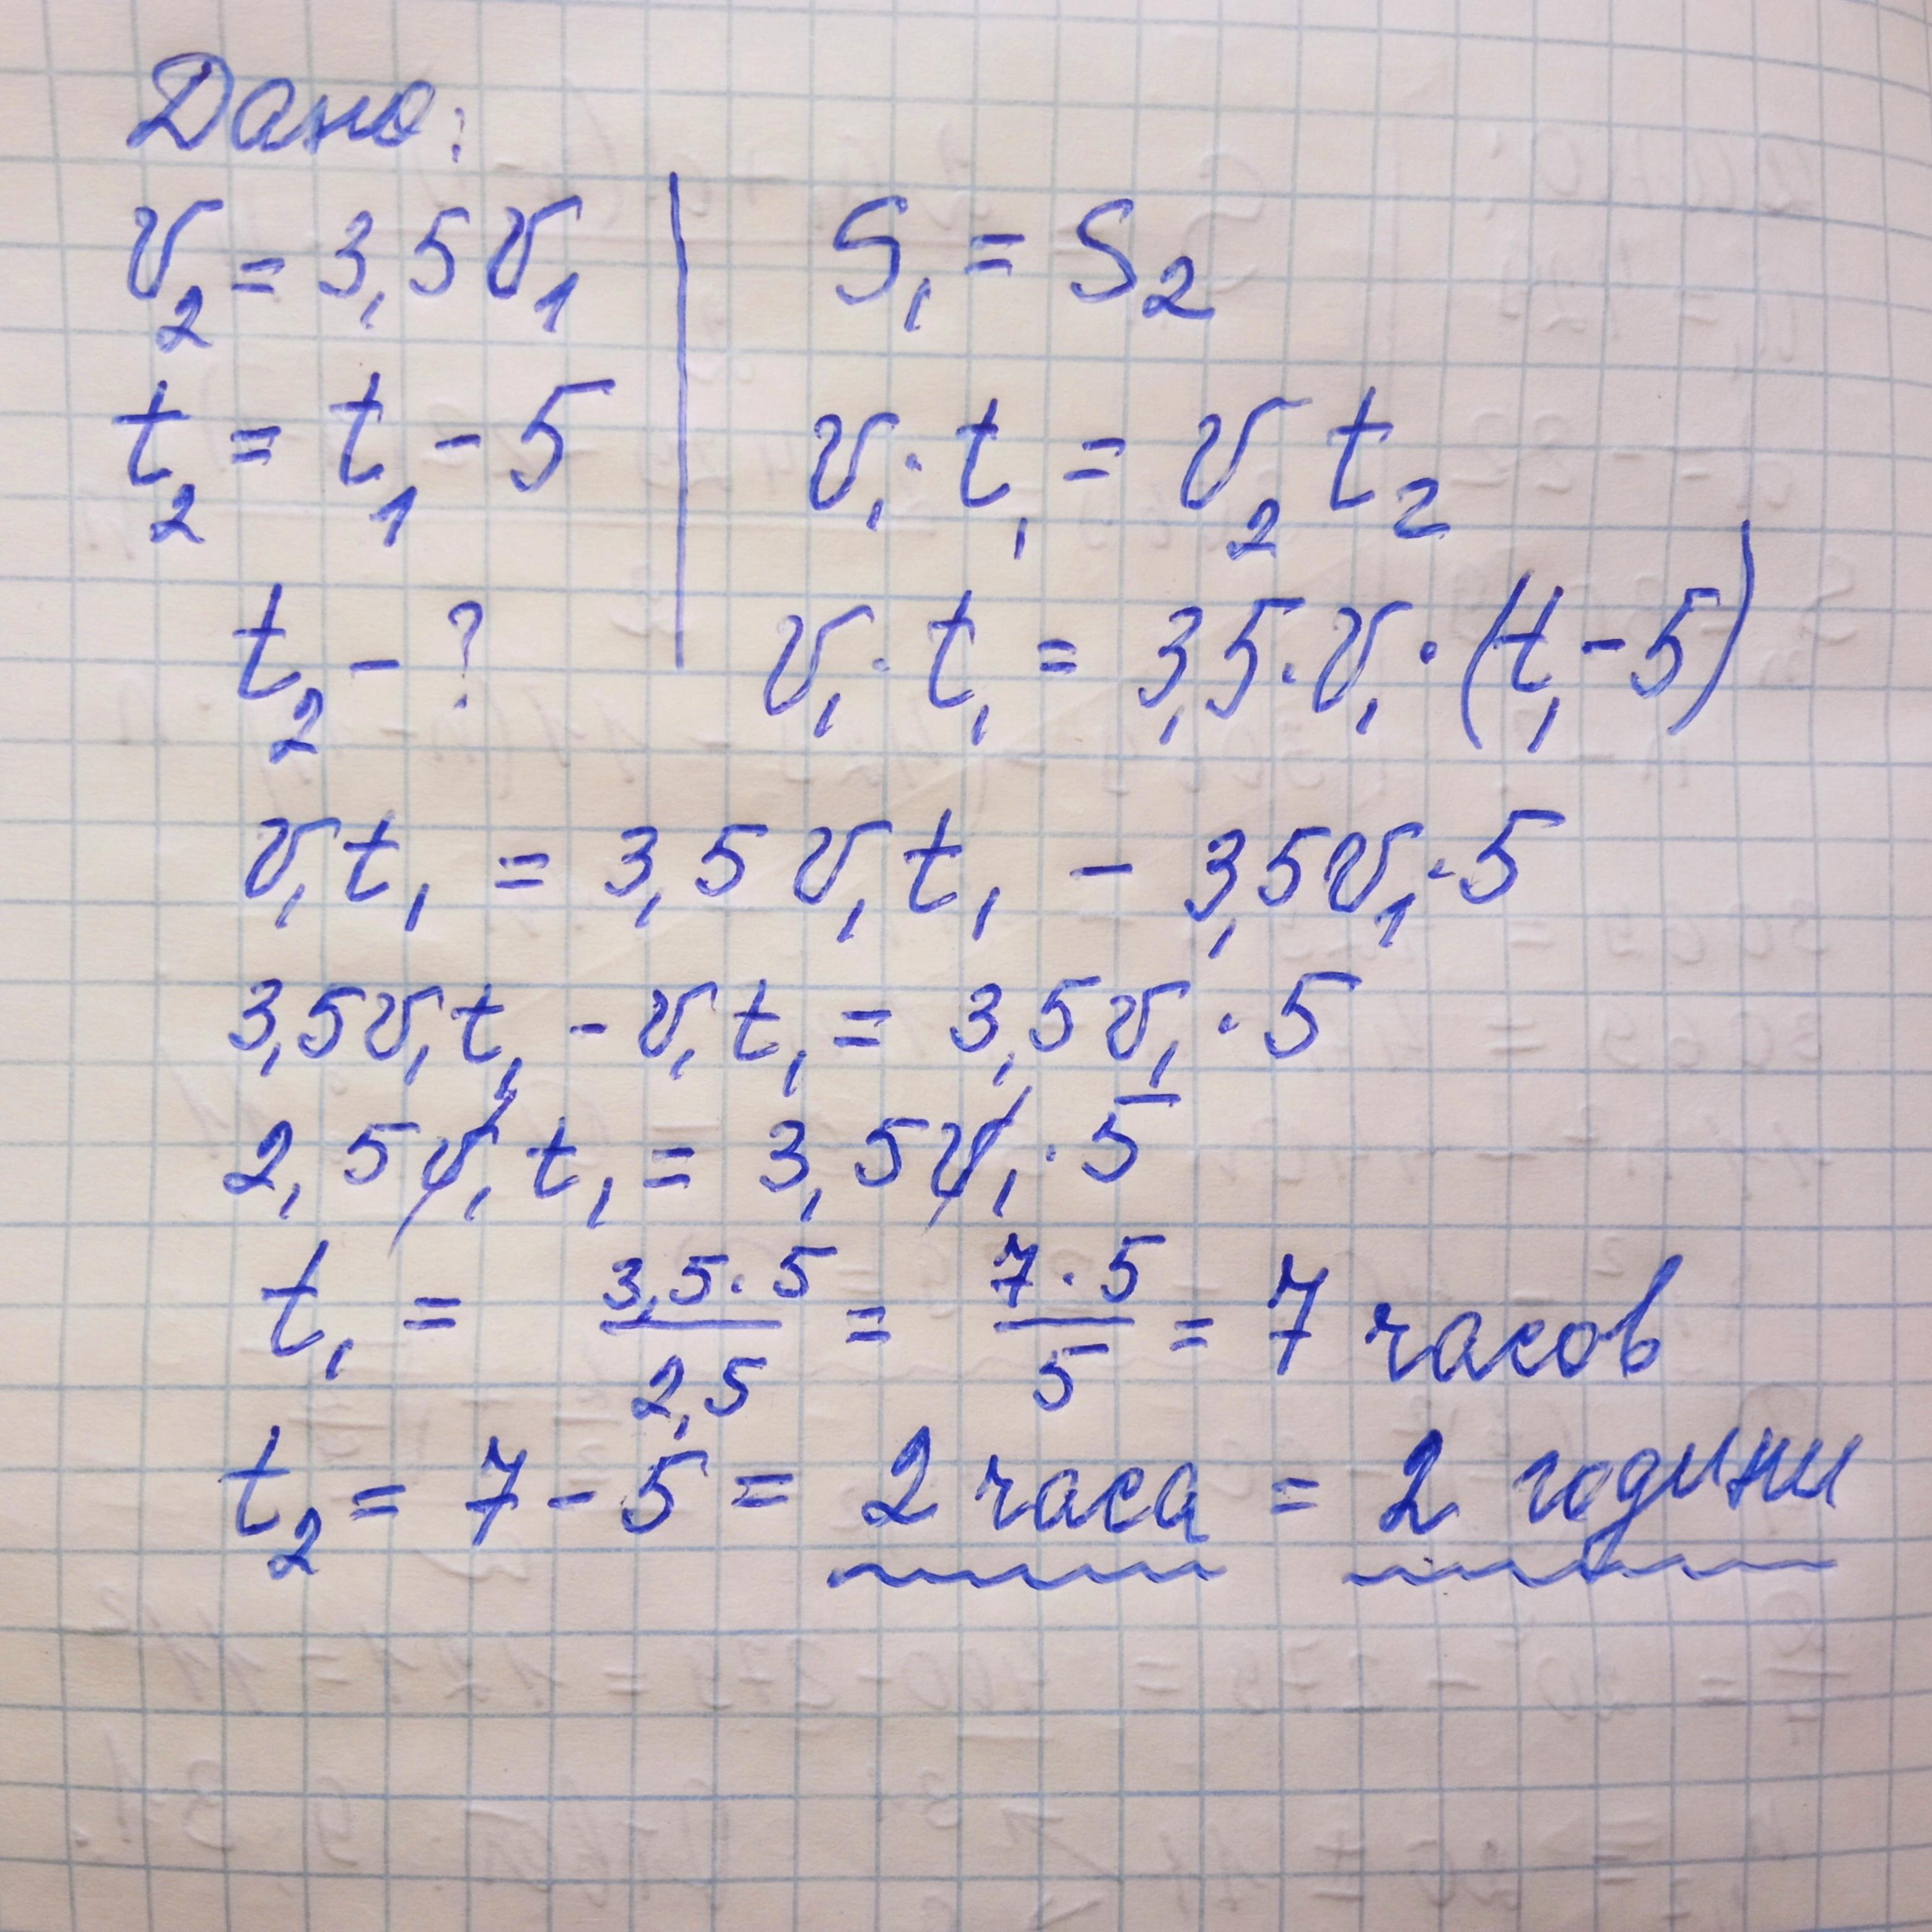 Дано:
v₂ = 3,5 v₁
t₂ = t₁ - 5
t₂ - ?
S₁ = S₂
v₁ · t₁ = v₂ t₂
v₁ · t₁ = 3,5 · v₁ · (t₁ - 5)
v₁ t₁ = 3,5 v₁ t₁ - 3,5 v₁ · 5
3,5 v₁ t₁ - v₁ t₁ = 3,5 v₁ · 5
2,5 v₁ t₁ = 3,5 v₁ · 5
t₁ = 3,5 · 5 / 2,5 = 7 · 5 / 5 = 7 часов
t₂ = 7 - 5 = 2 часа = 2 години